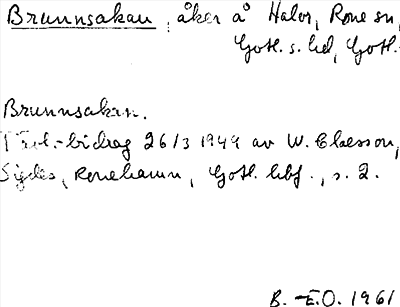 Brunnsakan, åker å Halor, Rone sn,
Gotl. s. hd, Gotl.
Brunnsakan.
bidrag 26/3 1949 av W. Claesson,
Sigdes, Ronehamn, Gotl. , s. 2.
B. -E.O. 1961